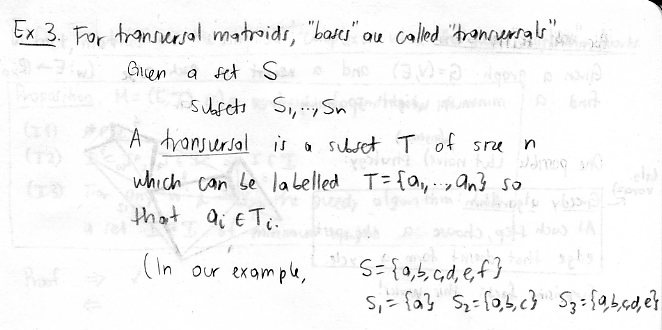 Ex 3. For transversal matroids, "bases" are called "transversals".
Given a set S
subsets S₁,..,Sₙ
A transversal is a subset T of size n
which can be labelled T={a₁,..,aₙ} so
that aᵢ ∈ Tᵢ.
(In our example, S={a,b,c,d,e,f}
S₁={a} S₂={a,b,c} S₃={a,b,c,d,e}